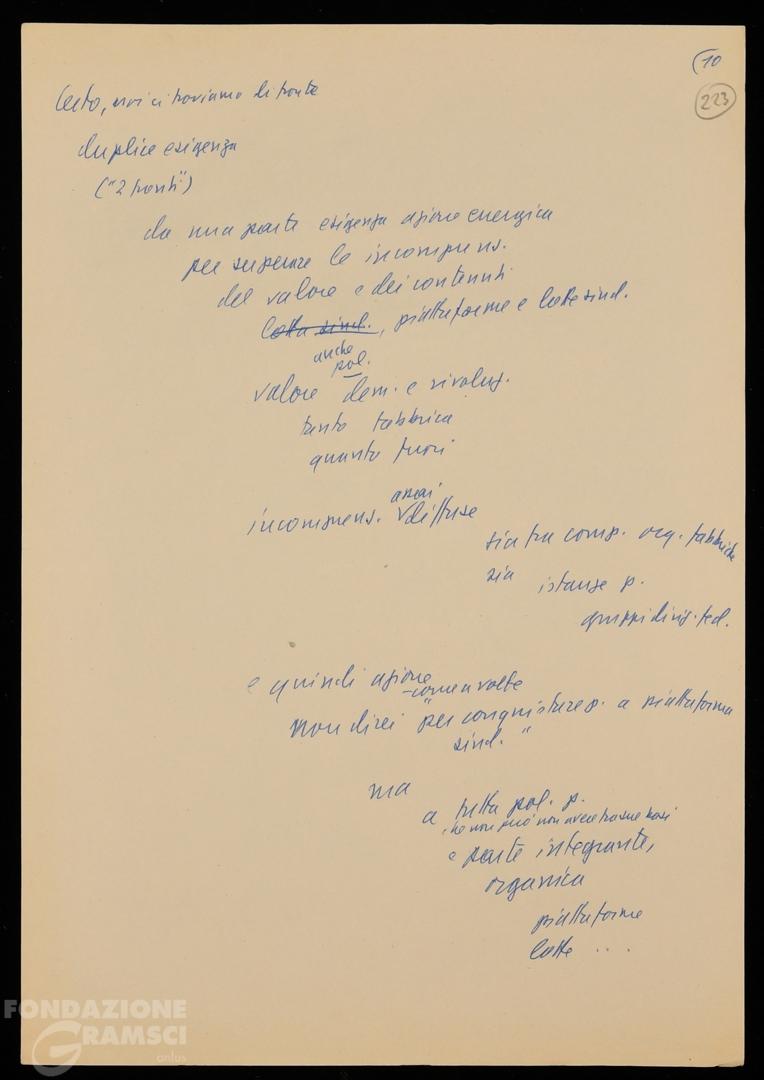 (10
223
Certo, noi ci troviamo di fronte
duplice esigenza
("2 fronti")
da una parte esigenza azione energica
per superare le incomprens.
del valore e dei contenuti
lotta sind., piattaforme e lotte sind.
anche
pol.
valore dem. e rivoluz.
tanto fabbrica
quanto fuori
assai
incomprens. diffuse
sia tra comp. org. fabbriche
sia istanze p.
gruppi dirig. fed.
e quindi azione
- come a volte
non direi "per conquistare p. a piattaforma
sind."
ma
a tutta pol. p.
che non può non avere tra sue basi
e parte integrante,
organica
piattaforme
lotte ....
FONDAZIONE
GRAMSCI
onlus